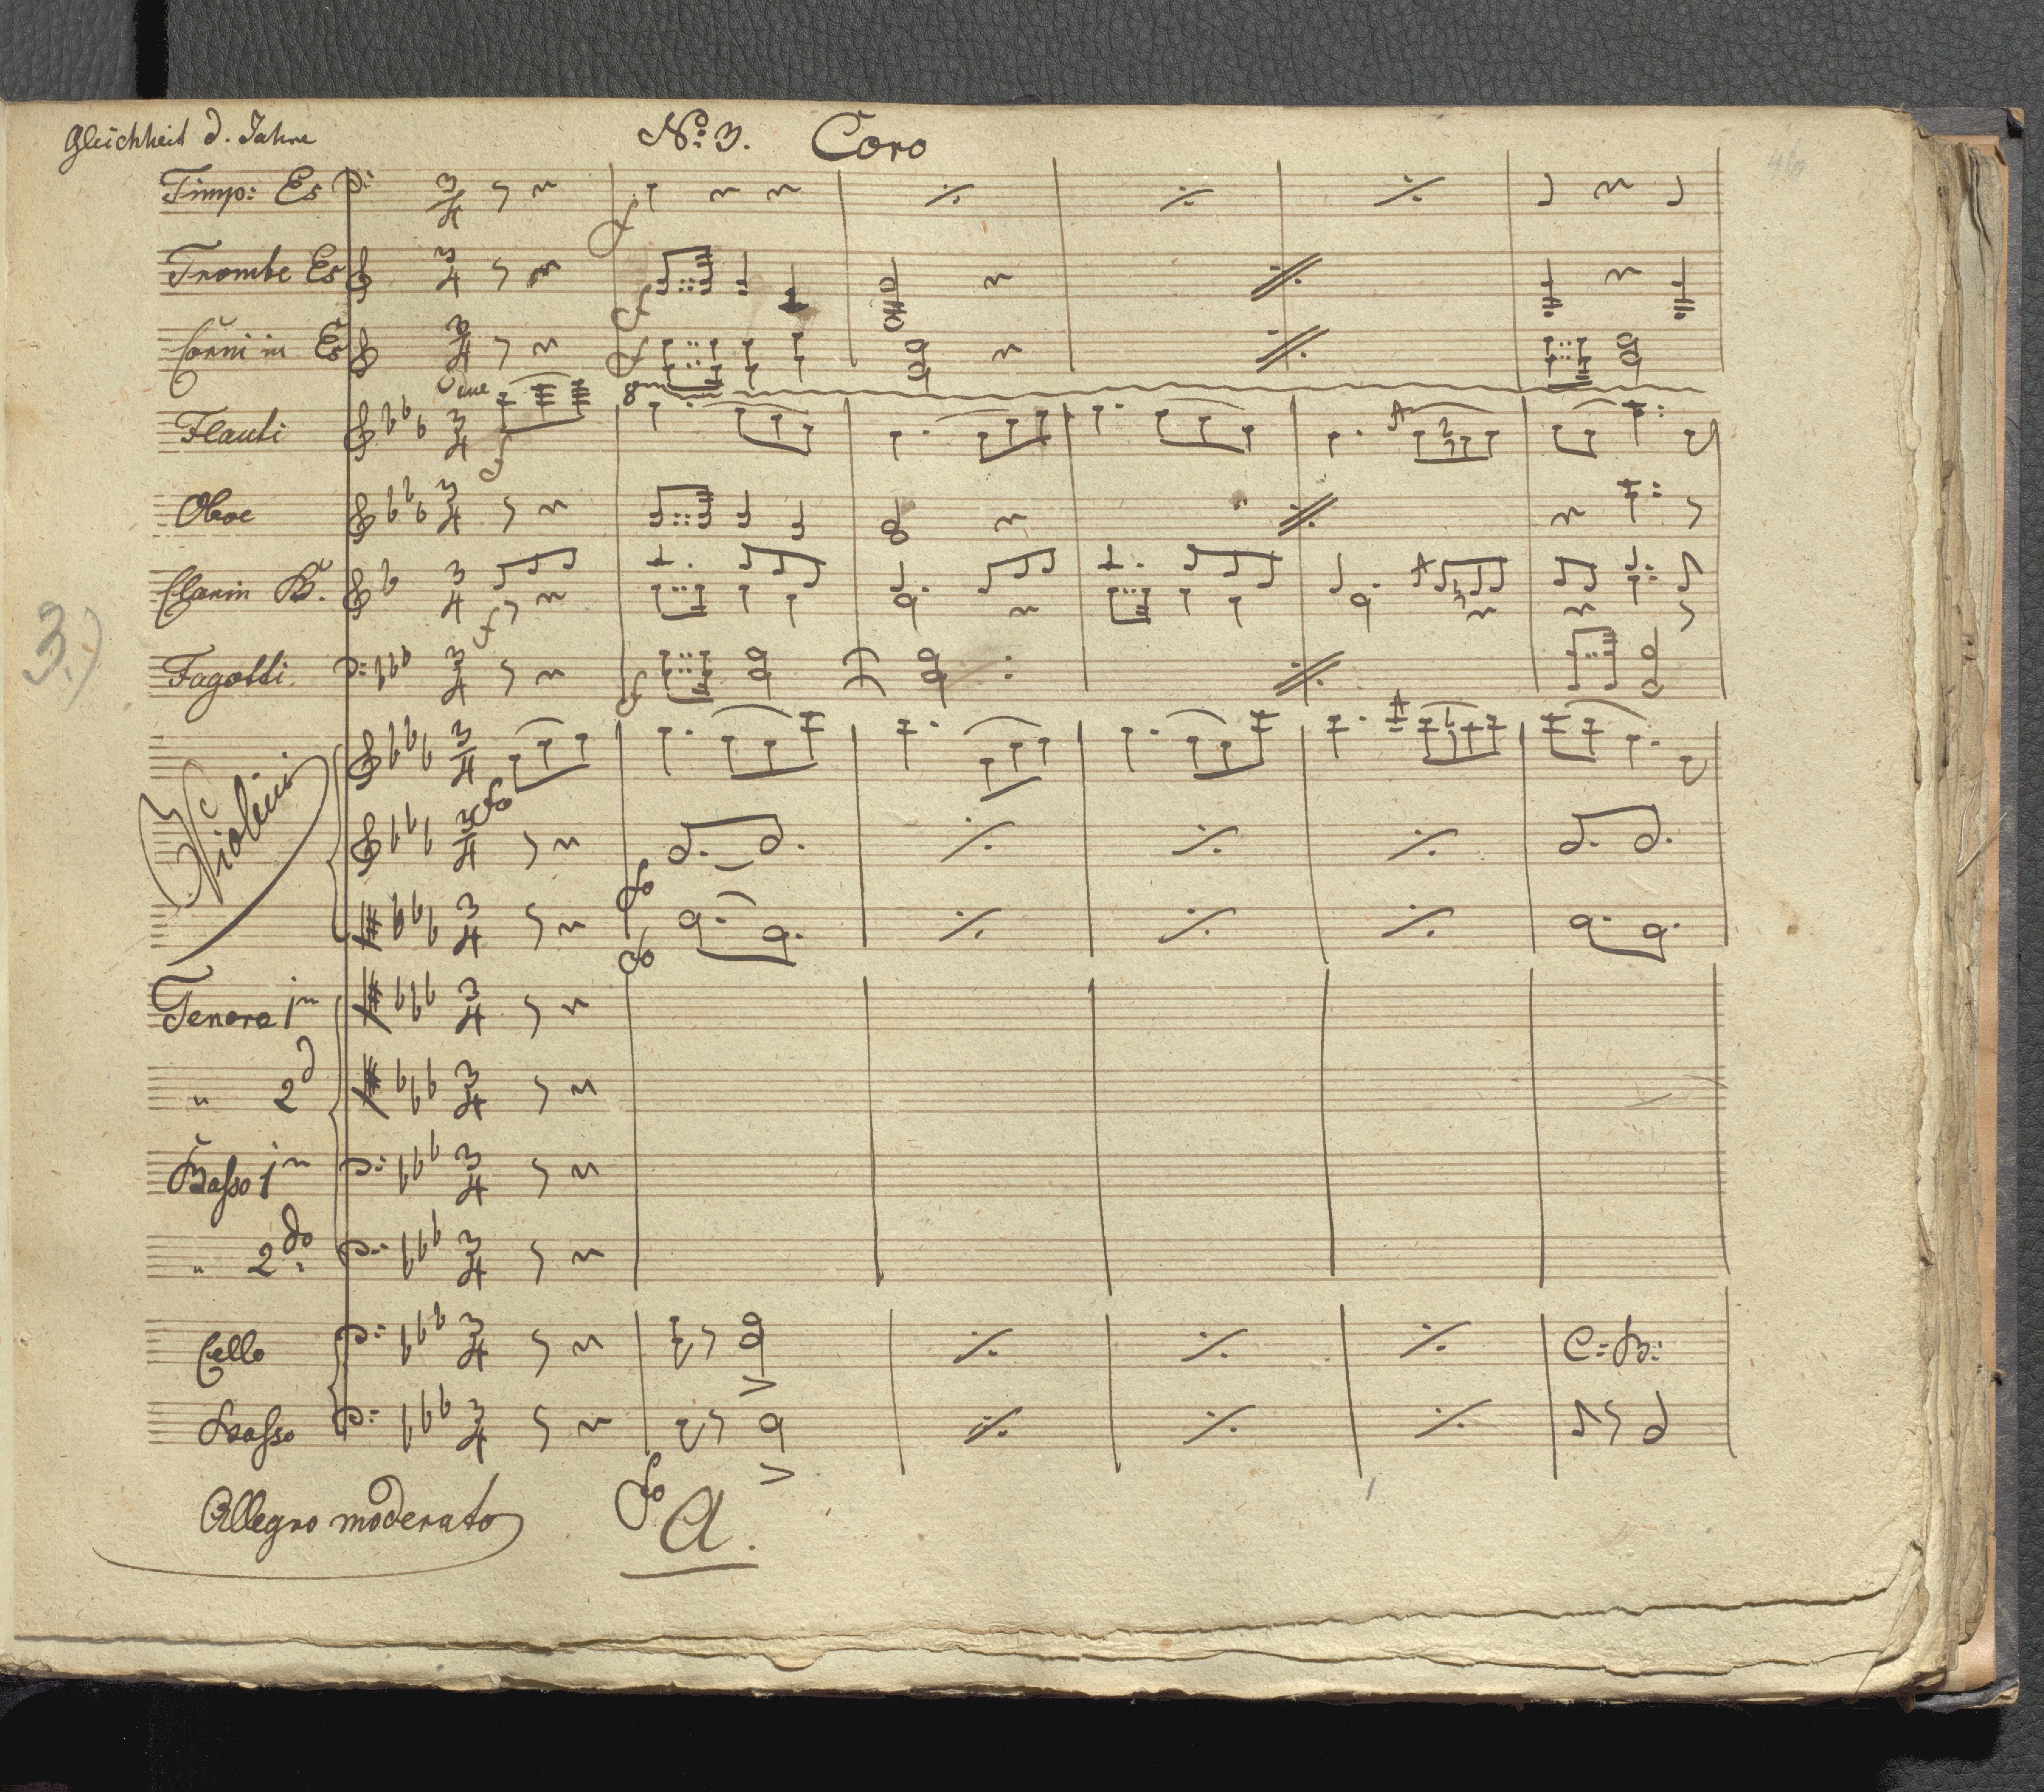 Gleichheit d. Jahre
No: 3. Coro
46
Timp: Es
Trombe Es
Corni in Es
8va
Flauti
Oboe
Clarin B.
3.)
Fagotti
Violini
fo
fo
fo
Tenore 1m
" 2d
Basso 1m
" 2do
Cello
C: B:
Basso
fo
Allegro moderato
A.